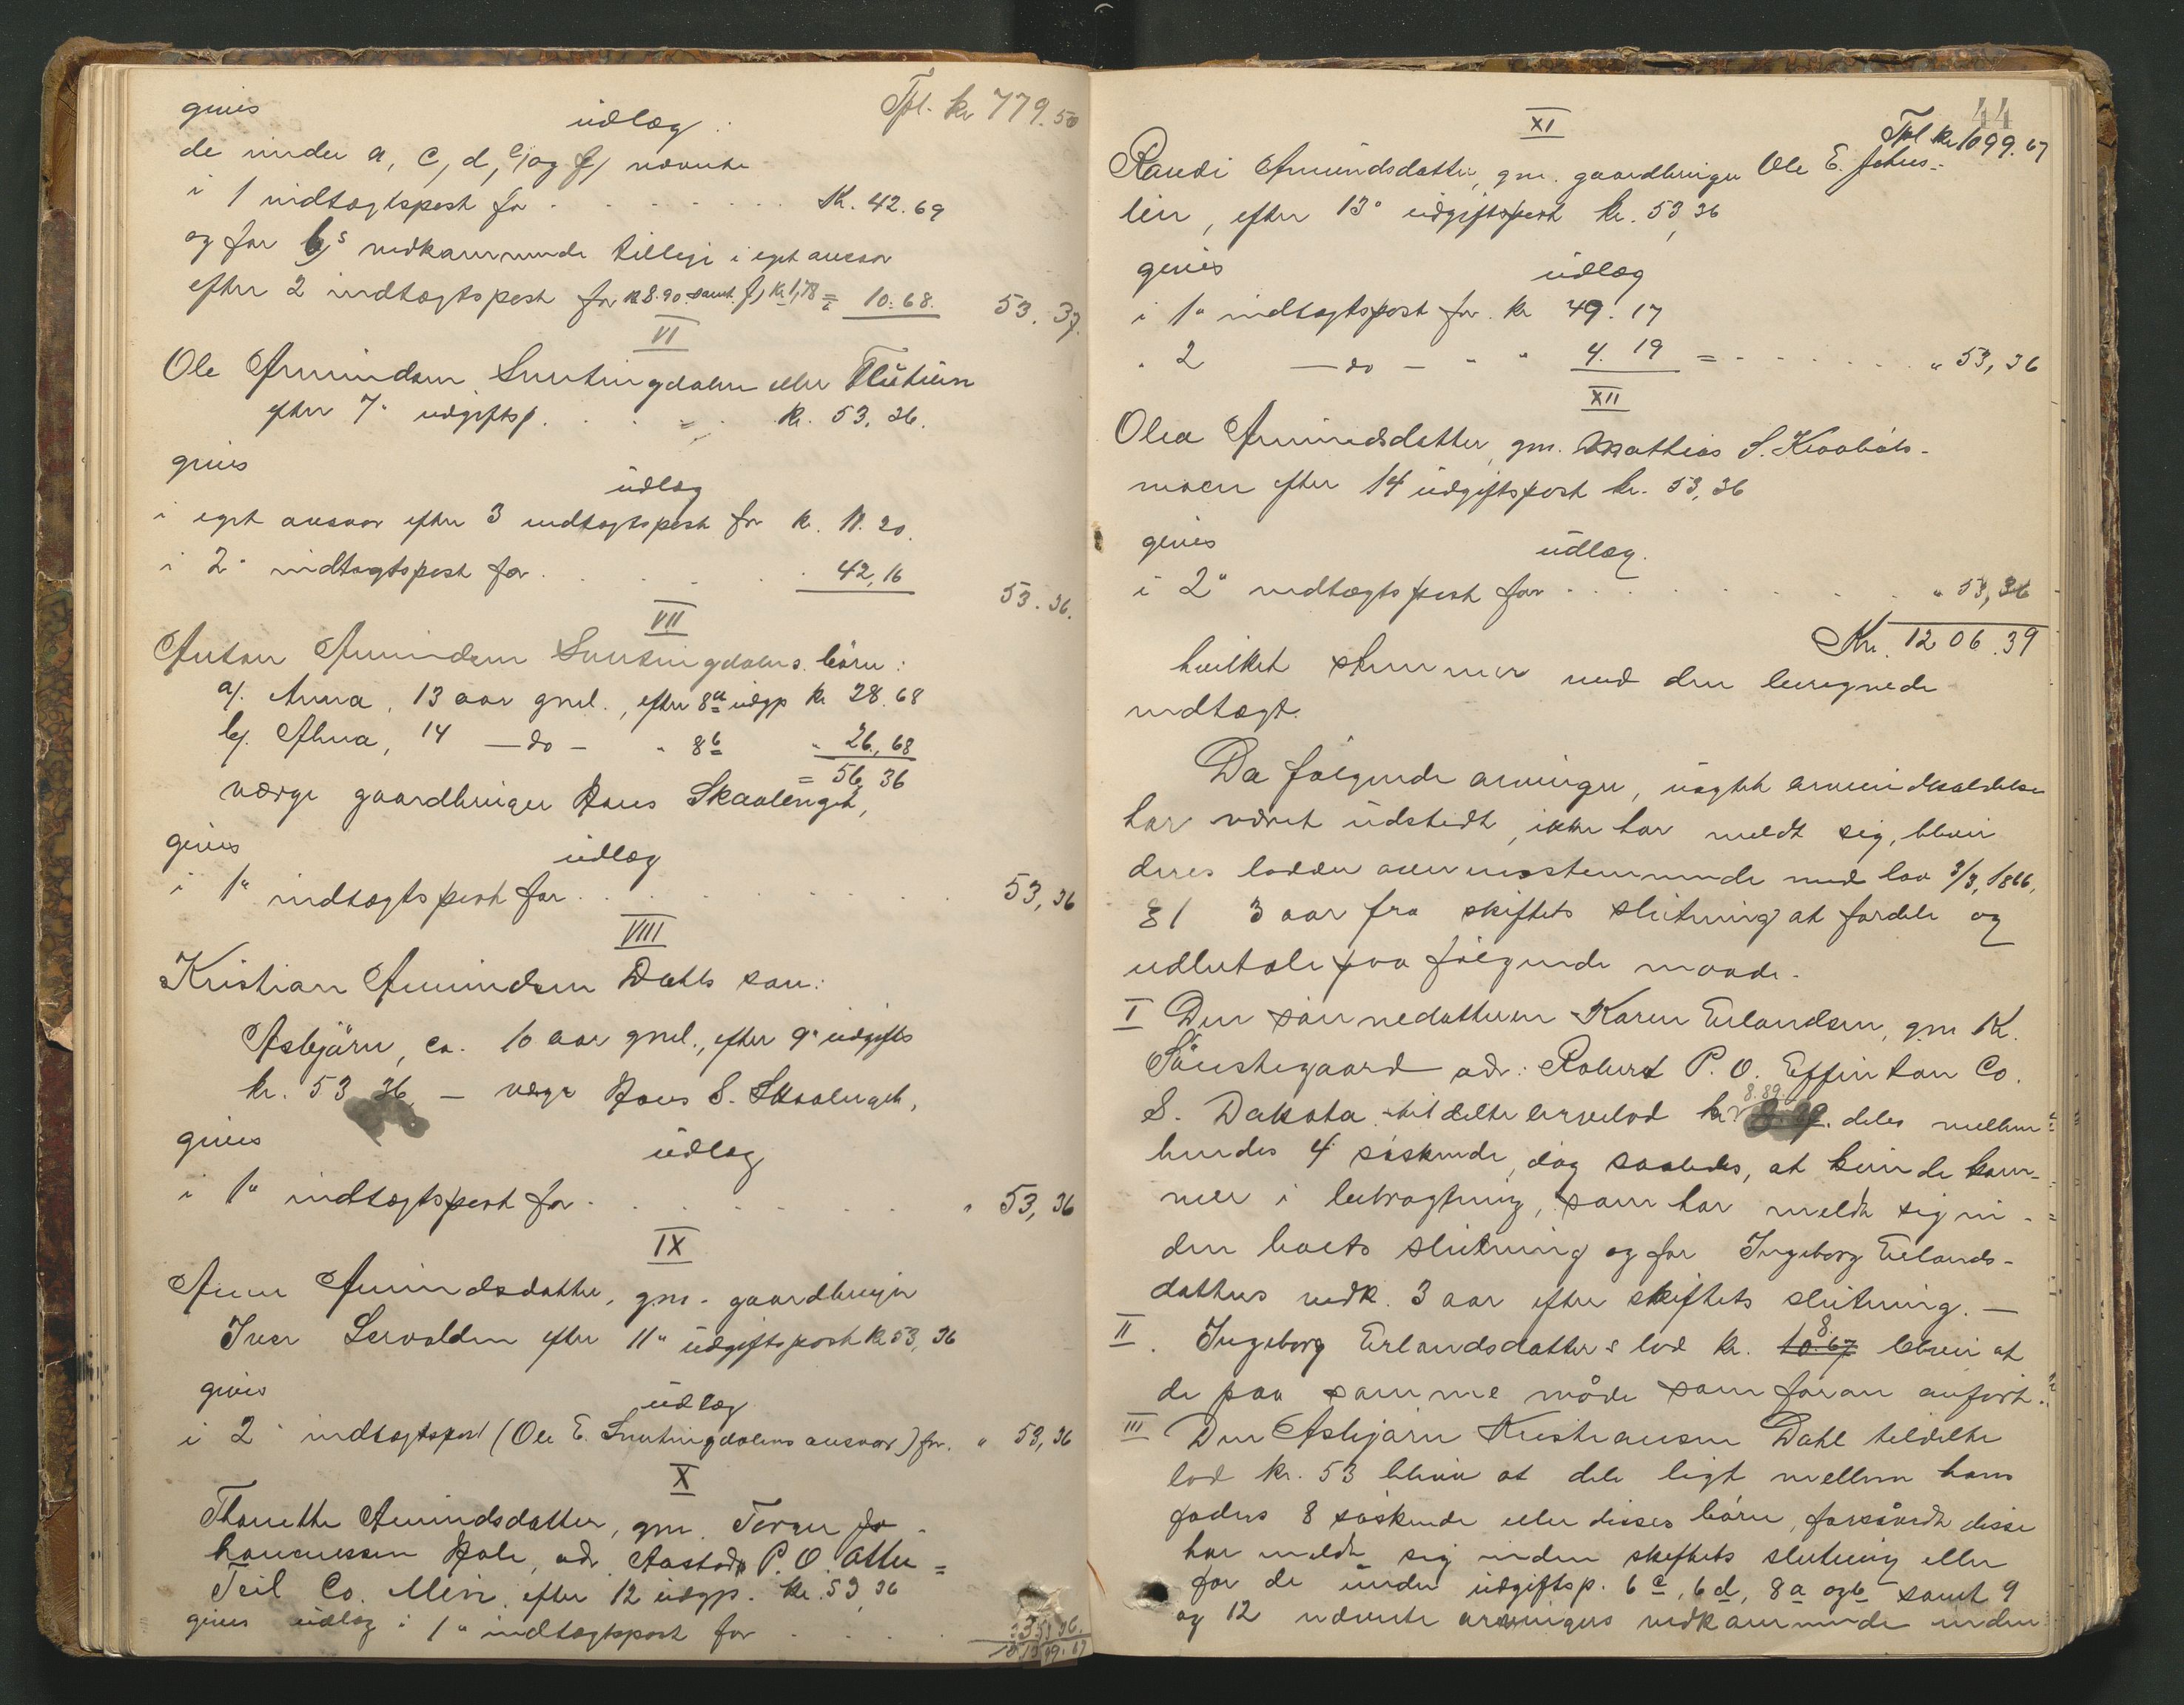 Tpl. kr 779.50
gives udlæg:
de under a, c, d, e, og f) nævnte
i 1 indtægtspost for . . . . . . Kr. 42.69
og for b)s vedkommende tillige i eget ansvar
efter 2 indtægtspost for kr 8.90 samt f) kr 1,78 = 10.68. 53.37.
VI
Ole Amundsen eller
efter 7" udgiftsp. . . . = . kr. 53,36.
gives udlæg
i eget ansvar efter 3 indtægtspost for kr. 11.20.
i 2" indtægtspost for . . . . . . 42,16 53.36.
VII
Anton Amundsen børn:
a). Anna, 13 aar gml., efter 8a udgp kr 28.68
b). Alma, 14 —do— " 8b " 26,68
= 56,36
værge gaardbruger Hans Skaalenget,
gives udlæg
i 1" indtægtspost for . . . . . . 53,36
VIII
Kristian Amundsen Dahls søn:
Asbjørn, ca. 10 aar gml., efter 9" udgifts
kr. 53 36, — værge Hans S. Skaalenget,
gives udlæg
i 1" indtægtspost for . . . . . . " 53,36
IX
Anne Amundsdatter, gm. gaardbruger
Iver efter 11" udgiftspost kr 53,36
gives udlæg
i 2" indtægtspost (Ole E. ansvar) for. " 53,36
X
Thonette Amundsdatter, gm. Jo-
hannessen Hole, adr. Aastad P. O. Otter=
Teil Co. Min. efter 12 udgp. kr. 53,36
gives udlæg i 1" indtægtspost for . . . . 53,36.
1099.67
44
Tpl kr 1099.67
XI
Randi Amundsdatter, gm. gaardbruger Ole E.
lien, efter 13" udgiftspost kr. 53,36
gives udlæg
i 1" indtægtspost for. kr 49.17
" 2 —do— " " 4.19 = . . . . . . " 53,36
XII
Olea Amundsdatter, gm. Mathias S.
moen efter 14 udgiftspost kr. 53,36
gives udlæg.
i 2" indtægtspost for . . . . . . " 53,36
Kr. 1206.39
hvilket stemmer med den beregnede
indtægt.
Da følgende arvinger, uagtet arveindkaldelse
har været udstedt, ikke har meldt sig, bliver
deres lodder overensstemmende med lov 3/3, 1866,
§ 1 3 aar fra skiftets slutning at fordele og
udbetale paa følgende maade.
I Den sønnedatteren Karen Erlandsen, gm K.
Sønstegaard adr: Robert P. O. Effinton Co.
S. Dakota tildelte arvelod kr 8.89. deles mellem
hendes 4 søskende, dog saaledes, at kun de kom-
mer i betragtning, som har meldt sig in-
den boets slutning og for Ingeborg Erlands-
datters vedk. 3 aar efter skiftets slutning. —
II. Ingeborg Erlandsdatters lod kr. 10.67 8. bliver at
de paa samme måde som foran anført.
III Den Asbjørn Kristiansen Dahl tildelte
lod kr. 53 bliver at dele ligt mellem hans
faders 8 søskende eller disses børn, forsåvidt disse
har meldt sig inden skiftets slutning eller
for de under udgiftsp. 6c, 6d, 8a og b samt 9
og 12 nævnte arvingers vedkommende inden